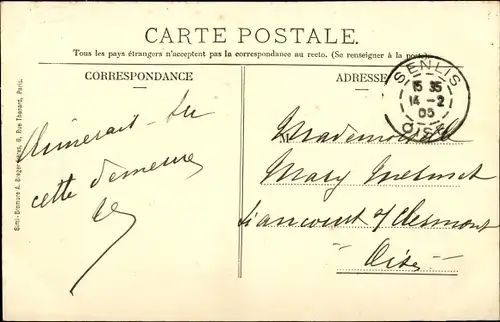 CARTE POSTALE.
Tous les pays étrangers n'acceptent pas la correspondance au recto. (Se renseigner à la poste)
CORRESPONDANCE
ADRESSE
SENLIS
15 35
14 - 2
05
OISE
Simi-Bromure A. Breger frères, 9, Rue Thénard, Paris.
Aimerait-tu
cette demeure
Mademoiselle
Mary
Liancourt s/ Clermont
Oise